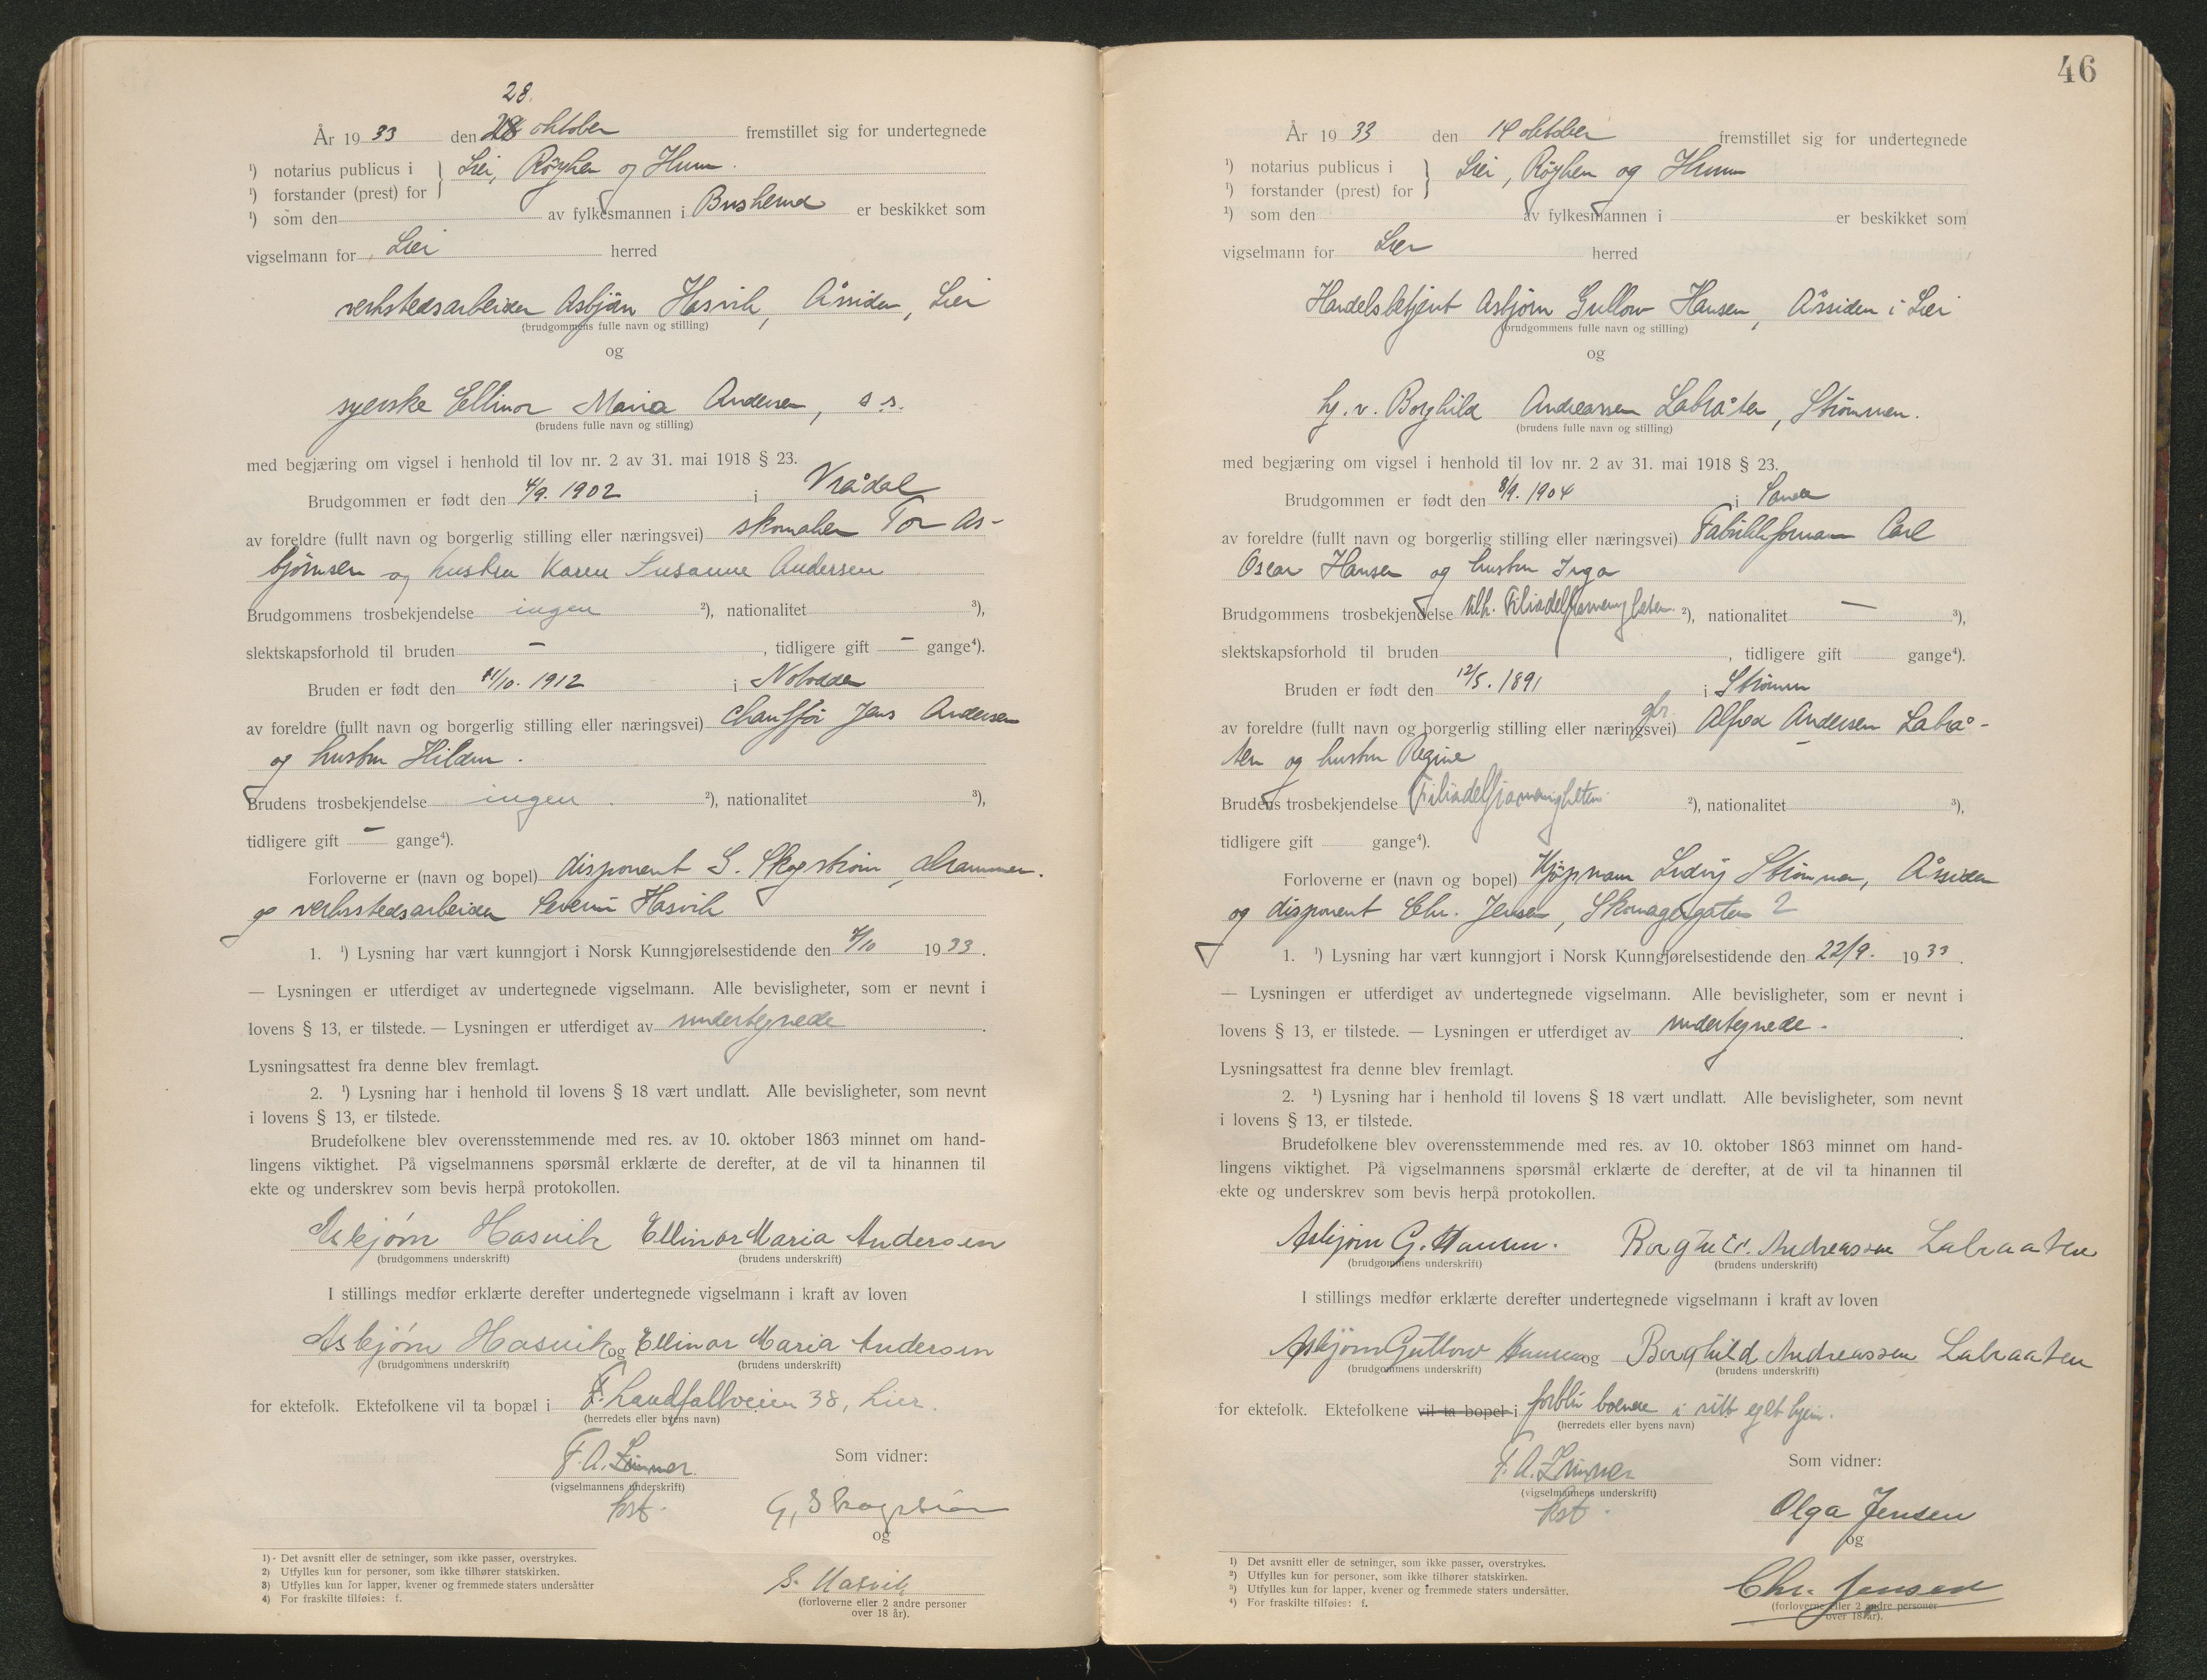 28.
År 19 33 den 28 oktober fremstillet sig for undertegnede
¹) notarius publicus i } Lier, Røyken og Hurum.
¹) forstander (prest) for
¹) som den av fylkesmannen i Buskerud er beskikket som
vigselmann for Lier herred
verkstedsarbeider Asbjørn Hasvik, Åssiden, Lier
(brudgommens fulle navn og stilling)
og
syerske Ellinor Maria Andersen, s.s.
(brudens fulle navn og stilling)
med begjæring om vigsel i henhold til lov nr. 2 av 31. mai 1918 § 23.
Brudgommen er født den 4/9. 1902 i Vrådal
av foreldre (fullt navn og borgerlig stilling eller næringsvei) skomaker Tor As-
bjørnsen og hustru Karen Susanne Andersen
Brudgommens trosbekjendelse ingen ²), nationalitet ³),
slektskapsforhold til bruden — , tidligere gift — gange⁴).
Bruden er født den 11/10. 1912 i Notodden
av foreldre (fullt navn og borgerlig stilling eller næringsvei) chauffør Jens Andersen
og hustru Hilda.
Brudens trosbekjendelse ingen. ²), nationalitet ³),
tidligere gift — gange⁴).
Forloverne er (navn og bopel) disponent G. Skogstrøm, Drammen.
og verksstedsarbeider Severin Hasvik
1. ¹) Lysning har vært kunngjort i Norsk Kunngjørelsestidende den /10 1933.
— Lysningen er utferdiget av undertegnede vigselmann. Alle bevisligheter, som er nevnt i
lovens § 13, er tilstede. — Lysningen er utferdiget av undertegnede.
Lysningsattest fra denne blev fremlagt.
2. ¹) Lysning har i henhold til lovens § 18 vært undlatt. Alle bevisligheter, som nevnt
i lovens § 13, er tilstede.
Brudefolkene blev overensstemmende med res. av 10. oktober 1863 minnet om hand-
lingens viktighet. På vigselmannens spørsmål erklærte de derefter, at de vil ta hinannen til
ekte og underskrev som bevis herpå protokollen.
Asbjørn Hasvik Ellinor Maria Andersen
(brudgommens underskrift) (brudens underskrift)
I stillings medfør erklærte derefter undertegnede vigselmann i kraft av loven
Asbjørn Hasvik og Ellinor Maria Andersen
(brudgommens underskrift) (brudens underskrift)
for ektefolk. Ektefolkene vil ta bopæl i F. Landfallveien 38, Lier.
(herredets eller byens navn)
F. A. Som vidner:
(vigselmannens underskrift)
kst. G. Skogstrøm
og
S. Hasvik
(forloverne eller 2 andre personer
over 18 år).
1) Det avsnitt eller de setninger, som ikke passer, overstrykes.
2) Utfylles kun for personer, som ikke tilhører statskirken.
3) Utfylles kun for lapper, kvener og fremmede staters undersåtter
4) For fraskilte tilføies: f.
46
År 19 33 den 14 oktober fremstillet sig for undertegnede
¹) notarius publicus i } Lier, Røyken og Hurum
¹) forstander (prest) for
¹) som den av fylkesmannen i er beskikket som
vigselmann for Lier herred
Handelsbetjent Asbjørn Gullow Hansen, Åssiden i Lier
(brudgommens fulle navn og stilling)
og
hj. v. Borghild Andreassen Labråten, Strømmen.
(brudens fulle navn og stilling)
med begjæring om vigsel i henhold til lov nr. 2 av 31. mai 1918 § 23.
Brudgommen er født den 8/9. 1904 i Sande
av foreldre (fullt navn og borgerlig stilling eller næringsvei) Fabrikkformann Carl
Oscar Hansen og hustru Inga
Brudgommens trosbekjendelse tilh. Filiadelfiamenigheten. ²), nationalitet — ³),
slektskapsforhold til bruden , tidligere gift gange⁴).
Bruden er født den 12/5. 1891 i Strømm
av foreldre (fullt navn og borgerlig stilling eller næringsvei) gbr. Alfred Andersen Labrå-
ten og hustru Regine
Brudens trosbekjendelse Filiadelfiamenigheten ²), nationalitet — ³),
tidligere gift gange⁴).
Forloverne er (navn og bopel) Kjøpmann Ludvig Strømmen, Åssiden
og disponent Chr. Jensen, Skomagergaten 2
1. ¹) Lysning har vært kunngjort i Norsk Kunngjørelsestidende den 22/9. 1933.
— Lysningen er utferdiget av undertegnede vigselmann. Alle bevisligheter, som er nevnt i
lovens § 13, er tilstede. — Lysningen er utferdiget av undertegnede.
Lysningsattest fra denne blev fremlagt.
2. ¹) Lysning har i henhold til lovens § 18 vært undlatt. Alle bevisligheter, som nevnt
i lovens § 13, er tilstede.
Brudefolkene blev overensstemmende med res. av 10. oktober 1863 minnet om hand-
lingens viktighet. På vigselmannens spørsmål erklærte de derefter, at de vil ta hinannen til
ekte og underskrev som bevis herpå protokollen.
Asbjørn G. Hansen. Borghild Andreassen Labraaten
(brudgommens underskrift) (brudens underskrift)
I stillings medfør erklærte derefter undertegnede vigselmann i kraft av loven
Asbjørn Gullow Hansen og Borghild Andreassen Labraaten
(brudgommens underskrift) (brudens underskrift)
for ektefolk. Ektefolkene vil ta bopel i forbli boende i sitt eget hjem.
(herredets eller byens navn)
F. A. Som vidner:
(vigselmannens underskrift)
kst. Olga Jensen
og
Chr. Jensen
(forloverne eller 2 andre personer
over 18 år).
¹) Det avsnitt eller de setninger, som ikke passer, overstrykes.
²) Utfylles kun for personer, som ikke tilhører statskirken.
³) Utfylles kun for lapper, kvener og fremmede staters undersåtter.
⁴) For fraskilte tilføies: f.